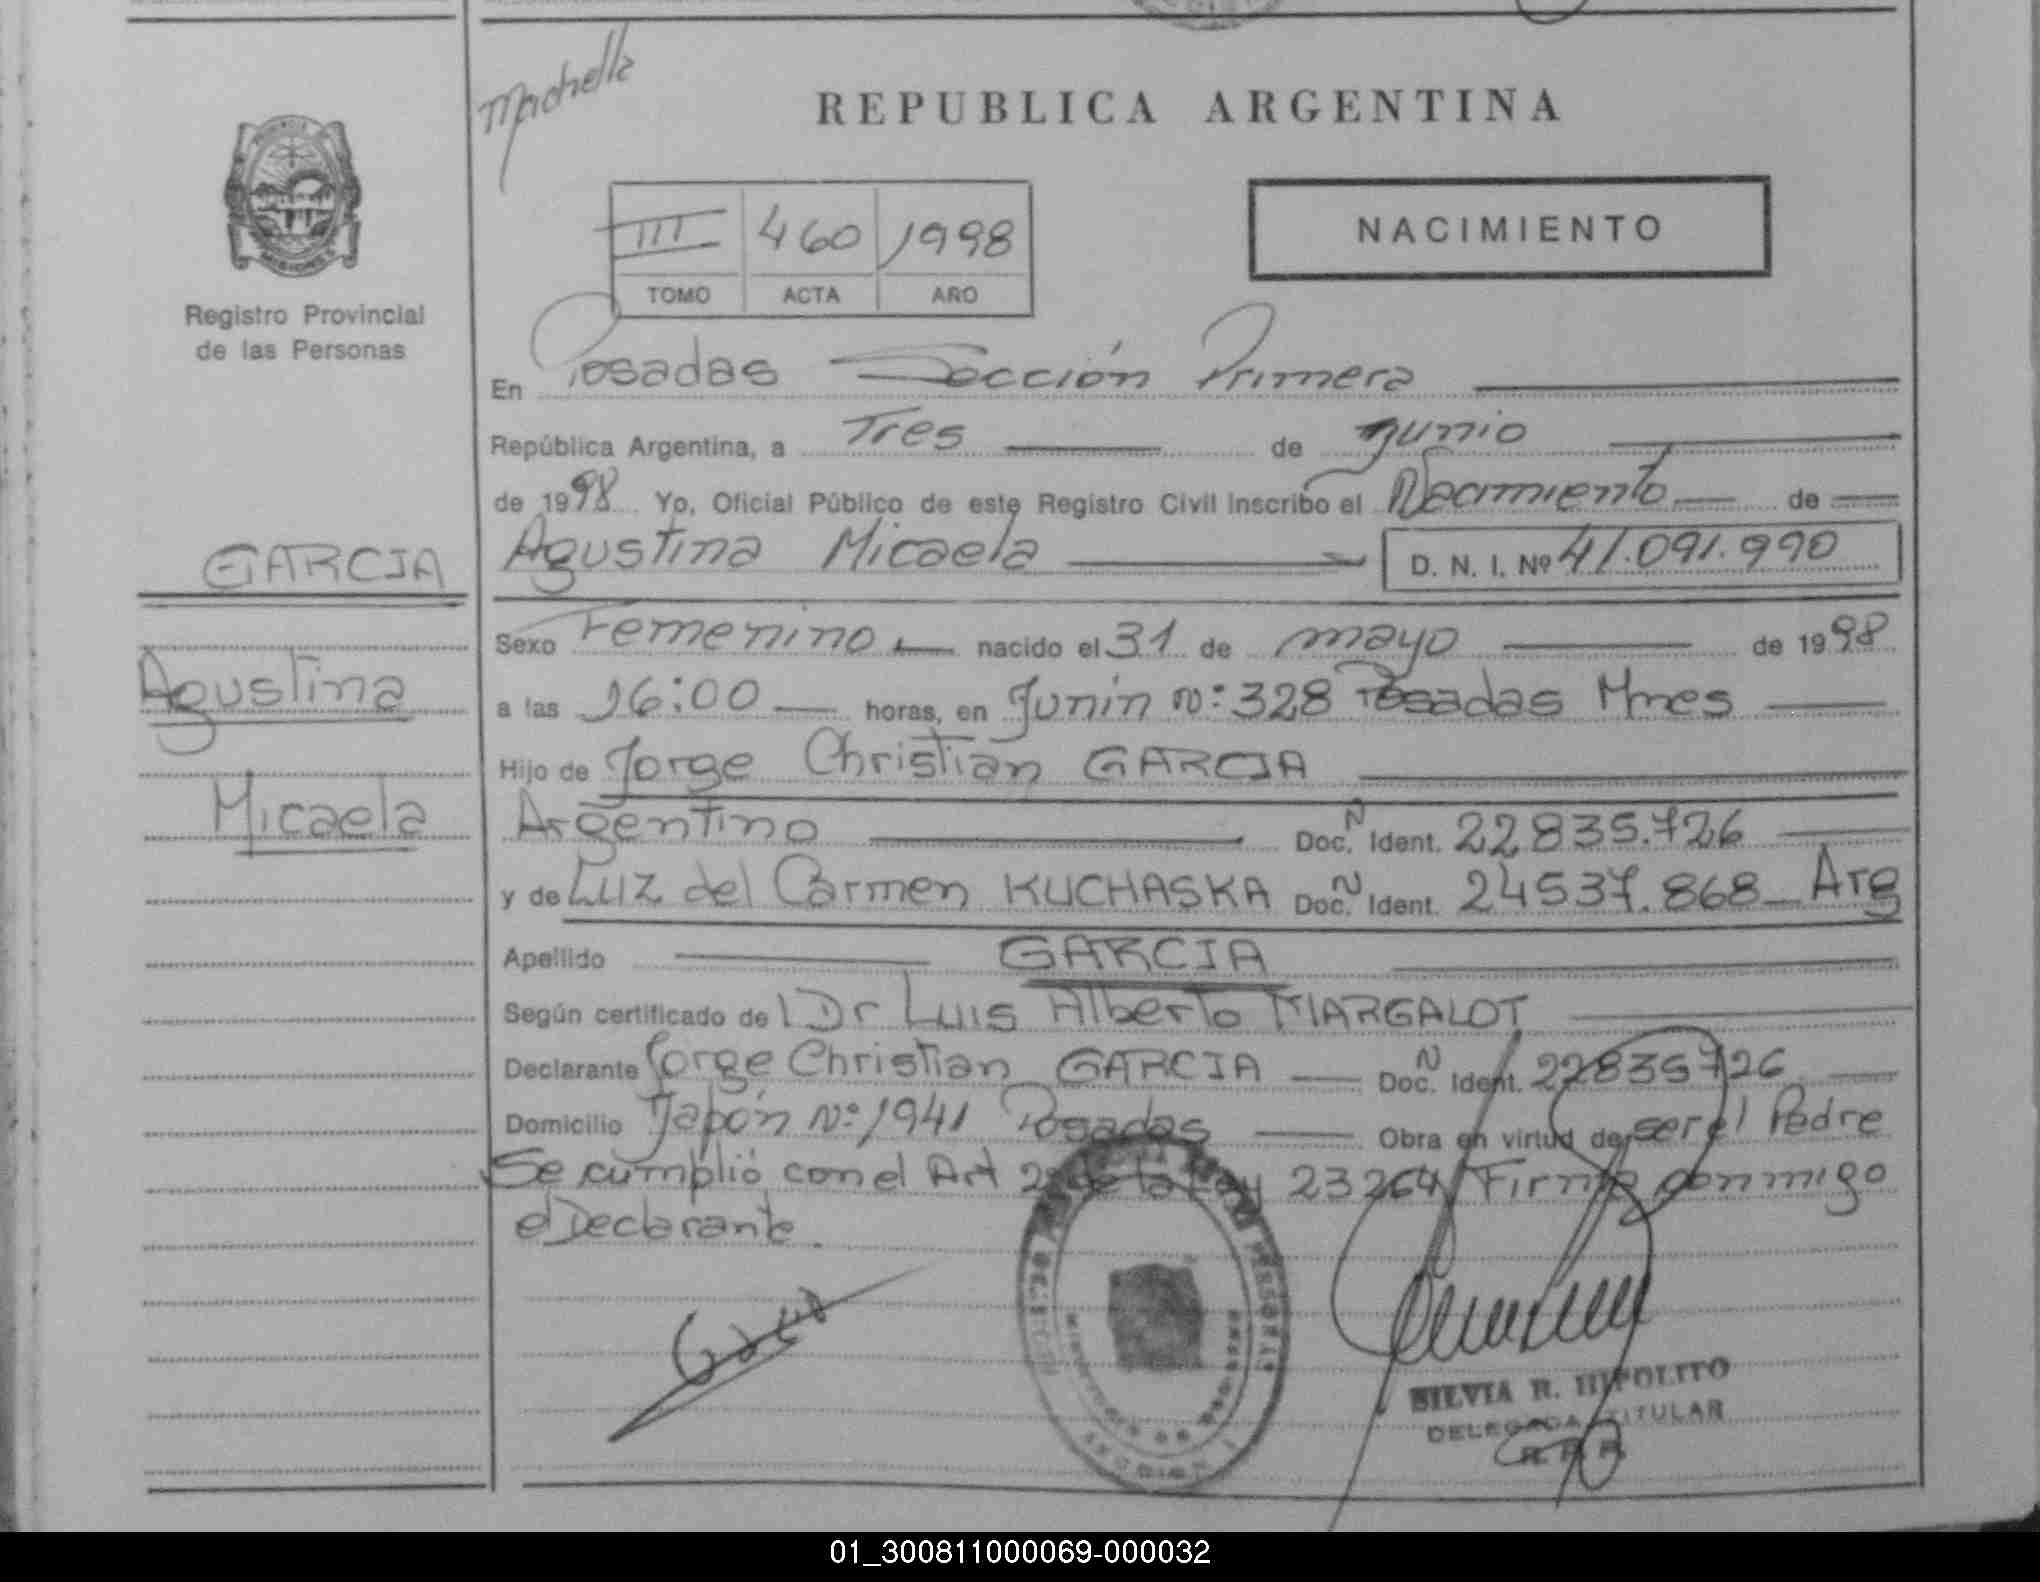 Machella
REPUBLICA ARGENTINA
III 460 1998
TOMO ACTA AÑO
NACIMIENTO
MISIONES
Registro Provincial
de las Personas
GARCIA
Agustina
Micaela
En Posadas Sección Primera
República Argentina, a Tres de Junio
de 1998 Yo, Oficial Público de este Registro Civil Inscribo el Nacimiento de
Agustina Micaela D. N. I. Nº 41.091.990
Sexo Femenino nacido el 31 de mayo de 1998
a las 16:00 horas, en Junín Nº: 328 Posadas Mnes
Hijo de Jorge Christian GARCIA
Argentino Doc. N Ident. 22835.726
y de Luz del Carmen KUCHASKA Doc. N Ident. 24537.868 Arg
Apellido GARCIA
Según certificado de Dr Luis Alberto MARGALOT
Declarante Jorge Christian GARCIA Doc. N Ident. 22835726
Domicilio Japón Nº: 1941 Posadas Obra en virtud de ser el Padre
Se cumplió con el Art 2 de la Ley 23264 Firma conmigo
el Declarante.
SILVIA R. HIPOLITO
DELEGADA TITULAR
R. P. P.
01_300811000069-000032